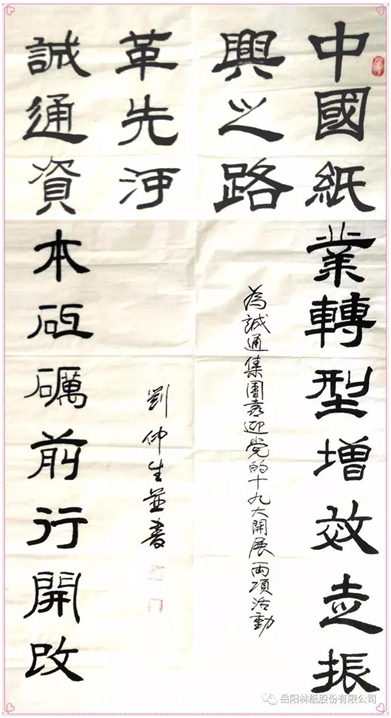 中國紙業轉型增效走振
興之路
為誠通集團喜迎党的十九大開展兩項活動
誠通資本砥礪前行開改
革先河
劉仲生並書
岳阳林纸股份有限公司